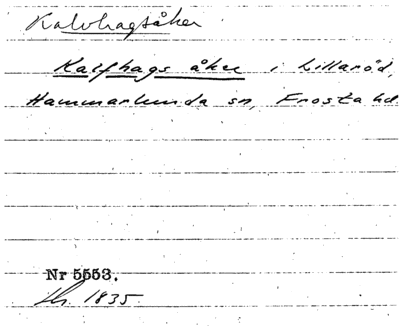 Kalvhagsåker
Kalfhags åker i Lillaröd,
Hammarlunda sn, Frosta hd
Nr 5553.
1835.